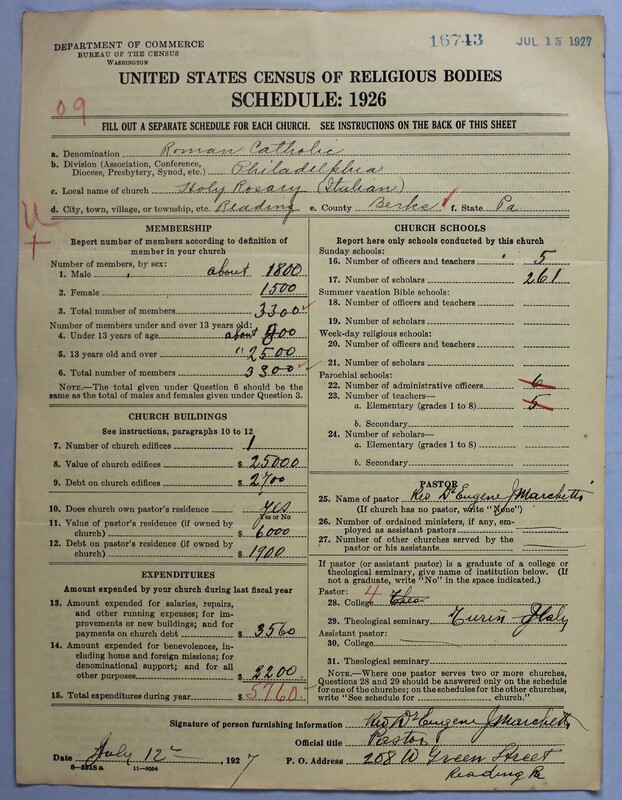 16743 JUL 15 1927
DEPARTMENT OF COMMERCE
BUREAU OF THE CENSUS
WASHINGTON
UNITED STATES CENSUS OF RELIGIOUS BODIES
SCHEDULE: 1926
09
FILL OUT A SEPARATE SCHEDULE FOR EACH CHURCH. SEE INSTRUCTIONS ON THE BACK OF THIS SHEET
a. Denomination Roman Catholic
b. Division (Association, Conference,
Diocese, Presbytery, Synod, etc.) Philadelphia
c. Local name of church Holy Rosary (Italian)
d. City, town, village, or township, etc. Reading e. County Berks f. State Pa
MEMBERSHIP
Report number of members according to definition of
member in your church
Number of members, by sex:
1. Male about 1800
2. Female 1500
3. Total number of members 3300
Number of members under and over 13 years old:
4. Under 13 years of age about 800
5. 13 years old and over " 2500
6. Total number of members 3300
NOTE.—The total given under Question 6 should be
same as the total of males and females given under Question 3.
CHURCH BUILDINGS
See instructions, paragraphs 10 to 12
7. Number of church edifices 1
8. Value of church edifices $ 25000
9. Debt on church edifices $ 2700
10. Does church own pastor's residence yes
Yes or No
11. Value of pastor's residence (if owned by
church) $ 6000
12. Debt on pastor's residence (if owned by
church) $ 1900
EXPENDITURES
Amount expended by your church during last fiscal year
13. Amount expended for salaries, repairs,
and other running expenses; for im-
provements or new buildings; and for
payments on church debt $ 3560
14. Amount expended for benevolences,
including home and foreign missions; for
denominational support; and for all
other purposes $ 2200
15. Total expenditures during year $ 5760.
CHURCH SCHOOLS
Report here only schools conducted by this church
Sunday schools:
16. Number of officers and teachers 5
17. Number of scholars 261
Summer vacation Bible schools:
18. Number of officers and teachers
19. Number of scholars
Week-day religious schools:
20. Number of officers and teachers
21. Number of scholars
Parochial schools:
22. Number of administrative officers 6
23. Number of teachers—
a. Elementary (grades 1 to 8) 5
b. Secondary
24. Number of scholars—
a. Elementary (grades 1 to 8)
b. Secondary
PASTOR
25. Name of pastor Rev Dr Eugene J Marchetti
(If church has no pastor, write "None")
26. Number of ordained ministers, if any, em-
ployed as assistant pastors
27. Number of other churches served by the
pastor or his assistants
If pastor (or assistant pastor) is a graduate of a college or
theological seminary, give name of institution below. (If
not a graduate, write "No" in the space indicated.)
Pastor: 4
28. College Theo
29. Theological seminary Turin Italy
Assistant pastor:
30. College
31. Theological seminary
NOTE.—Where one pastor serves two or more churches,
Questions 28 and 29 should be answered only on the schedule
for one of the churches; on the schedules for the other churches,
write "See schedule for church."
Signature of person furnishing information Rev Dr Eugene J Marchetti
Official title Pastor
Date July 12 1927 P. O. Address 208 W Green Street
Reading Pa
8—5318 a 11—9054